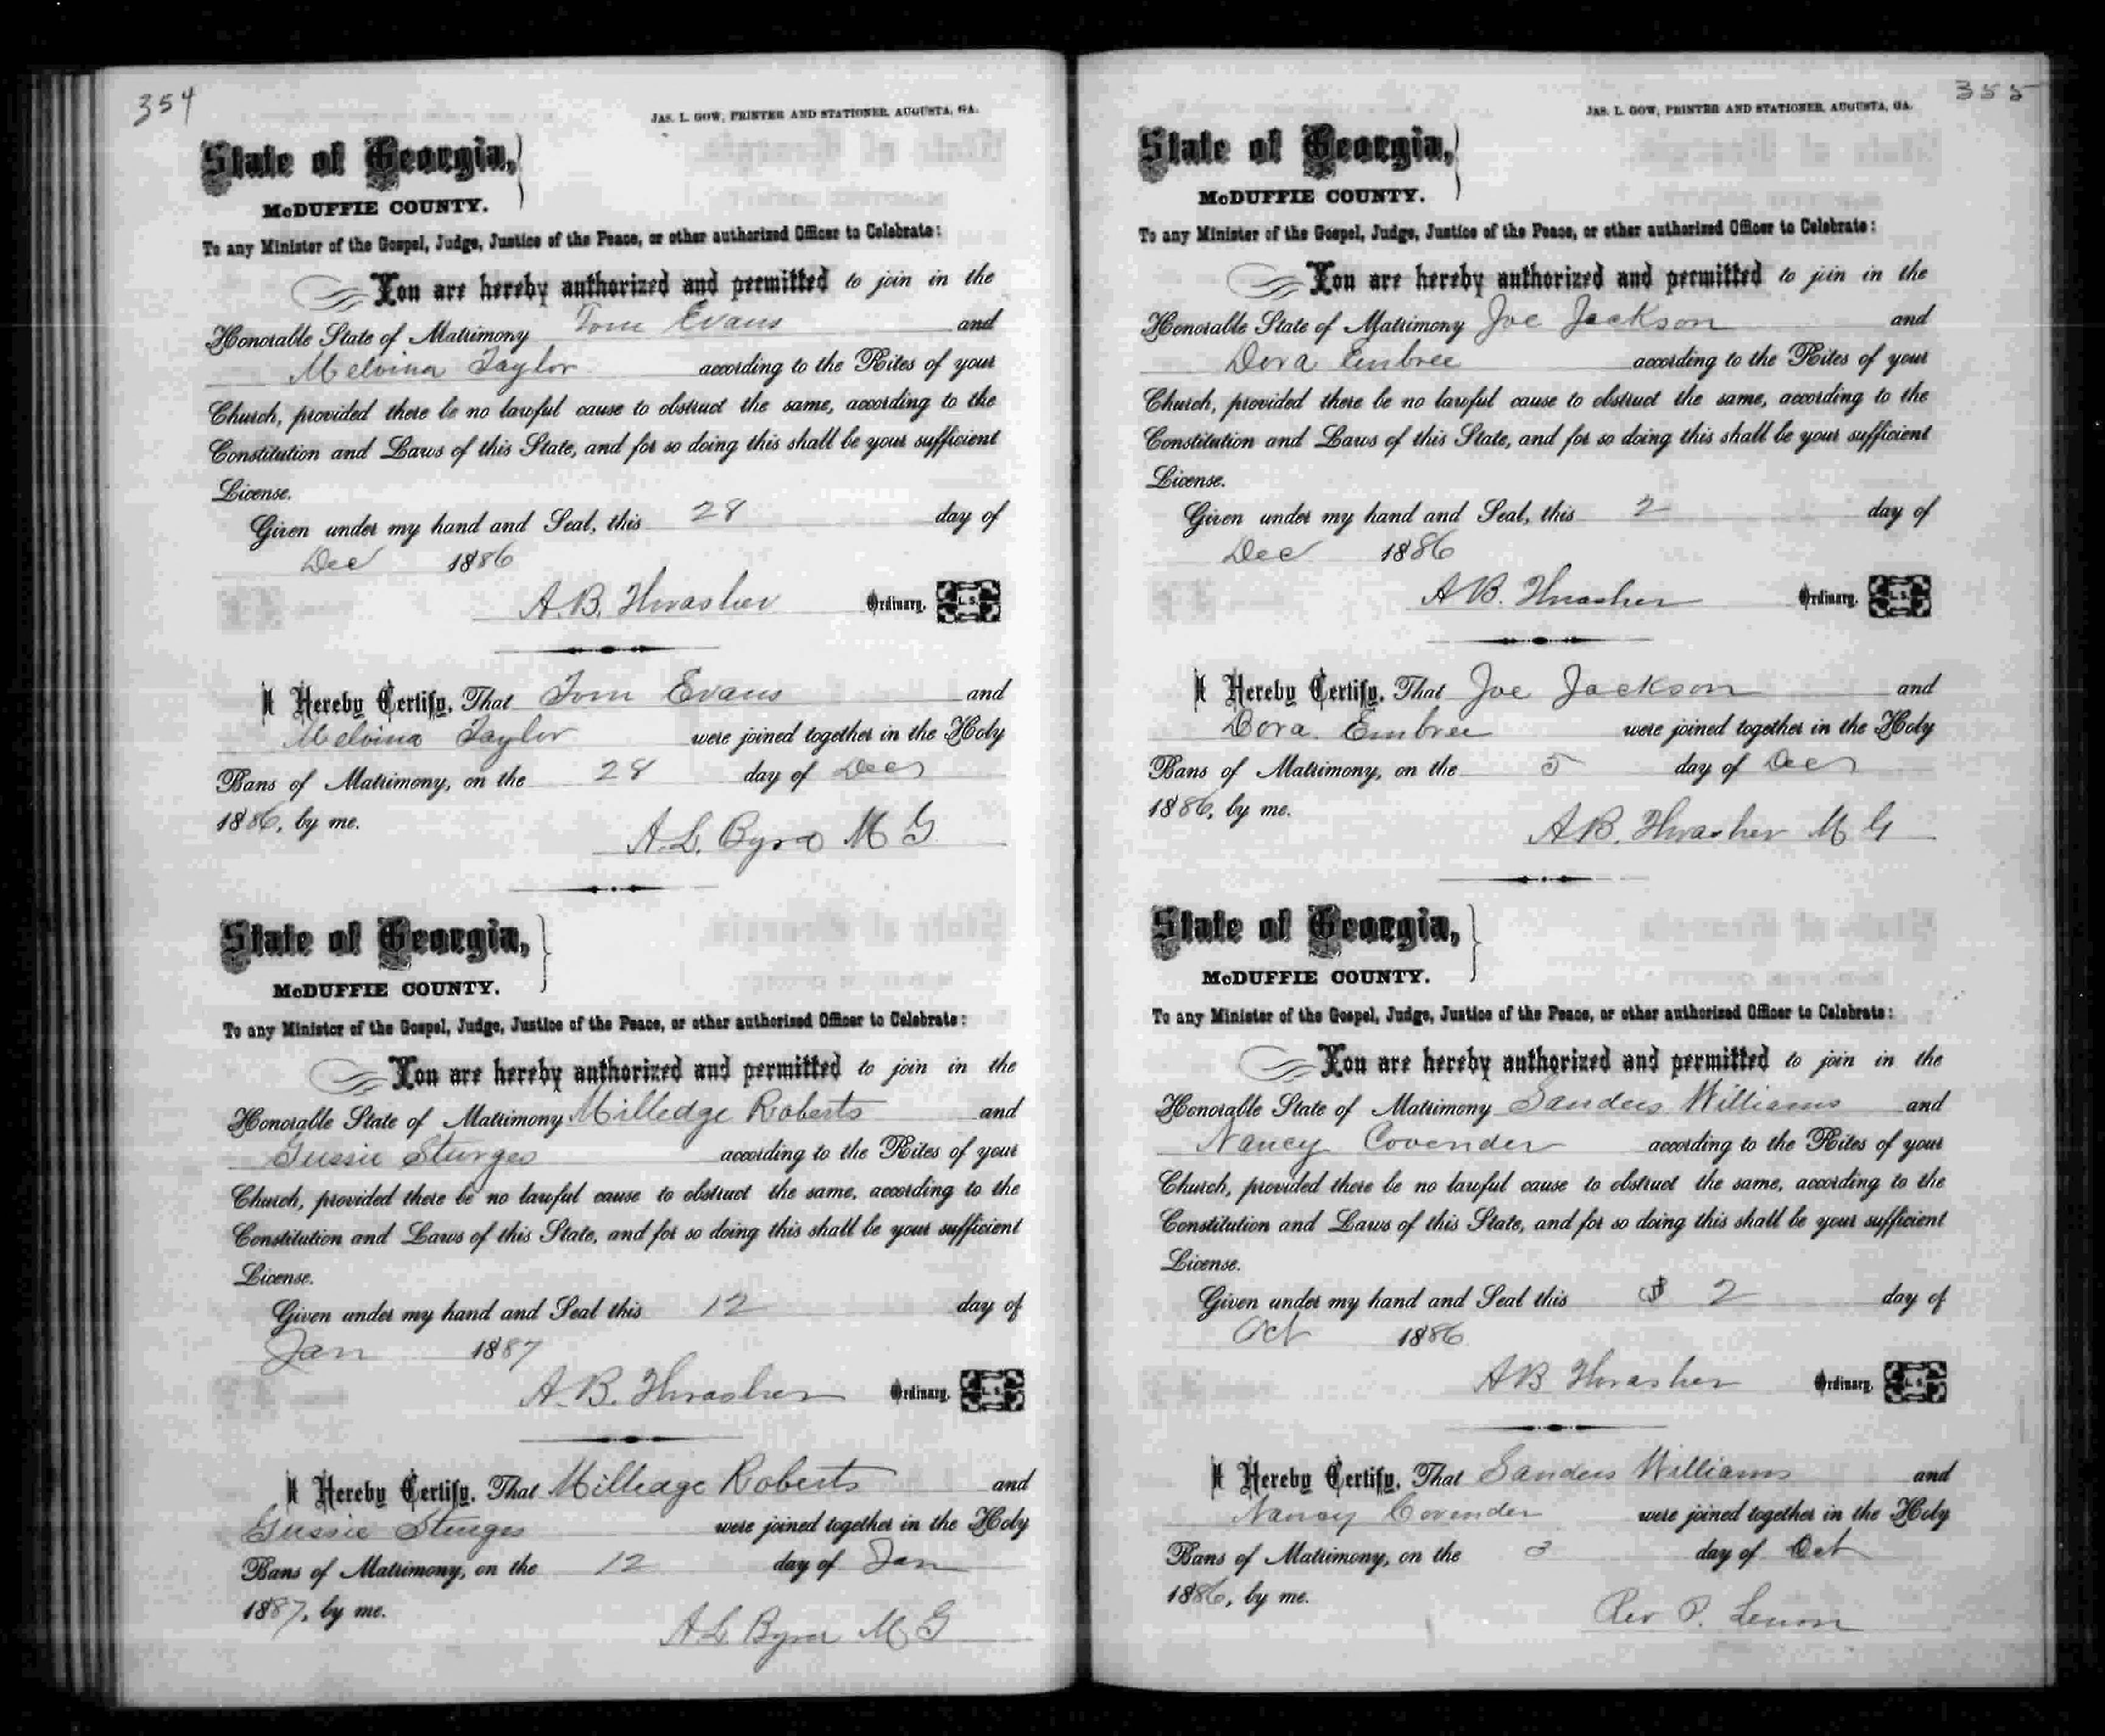 354
JAS. L. GOW, PRINTER AND STATIONER, AUGUSTA, GA.
State of Georgia,
McDUFFIE COUNTY.
To any Minister of the Gospel, Judge, Justice of the Peace, or other authorized Officer to Celebrate:
You are hereby authorized and permitted to join in the
Honorable State of Matrimony Tom Evans and
Melvina Taylor according to the Rites of your
Church, provided there be no lawful cause to obstruct the same, according to the
Constitution and Laws of this State, and for so doing this shall be your sufficient
License.
Given under my hand and Seal, this 28 day of
Dec 1886
A.B. Thrasher Ordinary. L.S.
I Hereby Certify, That Tom Evans and
Melvina Taylor were joined together in the Holy
Bans of Matrimony, on the 28 day of Dec
1886, by me.
A.L. Byrd M G
State of Georgia,
McDUFFIE COUNTY.
To any Minister of the Gospel, Judge, Justice of the Peace, or other authorized Officer to Celebrate:
You are hereby authorized and permitted to join in the
Honorable State of Matrimony Milledge Roberts and
Gussie Sturges according to the Rites of your
Church, provided there be no lawful cause to obstruct the same, according to the
Constitution and Laws of this State, and for so doing this shall be your sufficient
License.
Given under my hand and Seal this 12 day of
Jan 1887
A.B. Thrasher Ordinary. L.S.
I Hereby Certify, That Milledge Roberts and
Gussie Sturges were joined together in the Holy
Bans of Matrimony, on the 12 day of Jan
1887, by me.
A L Byrd M G
355
JAS. L. GOW, PRINTER AND STATIONER, AUGUSTA, GA.
State of Georgia,
McDUFFIE COUNTY.
To any Minister of the Gospel, Judge, Justice of the Peace, or other authorized Officer to Celebrate:
You are hereby authorized and permitted to join in the
Honorable State of Matrimony Joe Jackson and
Dora Embree according to the Rites of your
Church, provided there be no lawful cause to obstruct the same, according to the
Constitution and Laws of this State, and for so doing this shall be your sufficient
License.
Given under my hand and Seal, this 2 day of
Dec 1886
A B. Thrasher Ordinary. L.S.
I Hereby Certify, That Joe Jackson and
Dora Embree were joined together in the Holy
Bans of Matrimony, on the 5 day of Dec
1886, by me.
A B. Thrasher M G
State of Georgia,
McDUFFIE COUNTY.
To any Minister of the Gospel, Judge, Justice of the Peace, or other authorized Officer to Celebrate:
You are hereby authorized and permitted to join in the
Honorable State of Matrimony Sanders Williams and
Nancy Covender according to the Rites of your
Church, provided there be no lawful cause to obstruct the same, according to the
Constitution and Laws of this State, and for so doing this shall be your sufficient
License.
Given under my hand and Seal this 2 day of
Oct 1886
A B Thrasher Ordinary. L.S.
I Hereby Certify, That Sanders Williams and
Nancy Covender were joined together in the Holy
Bans of Matrimony, on the 3 day of Oct
1886, by me.
Rev P. Lenon